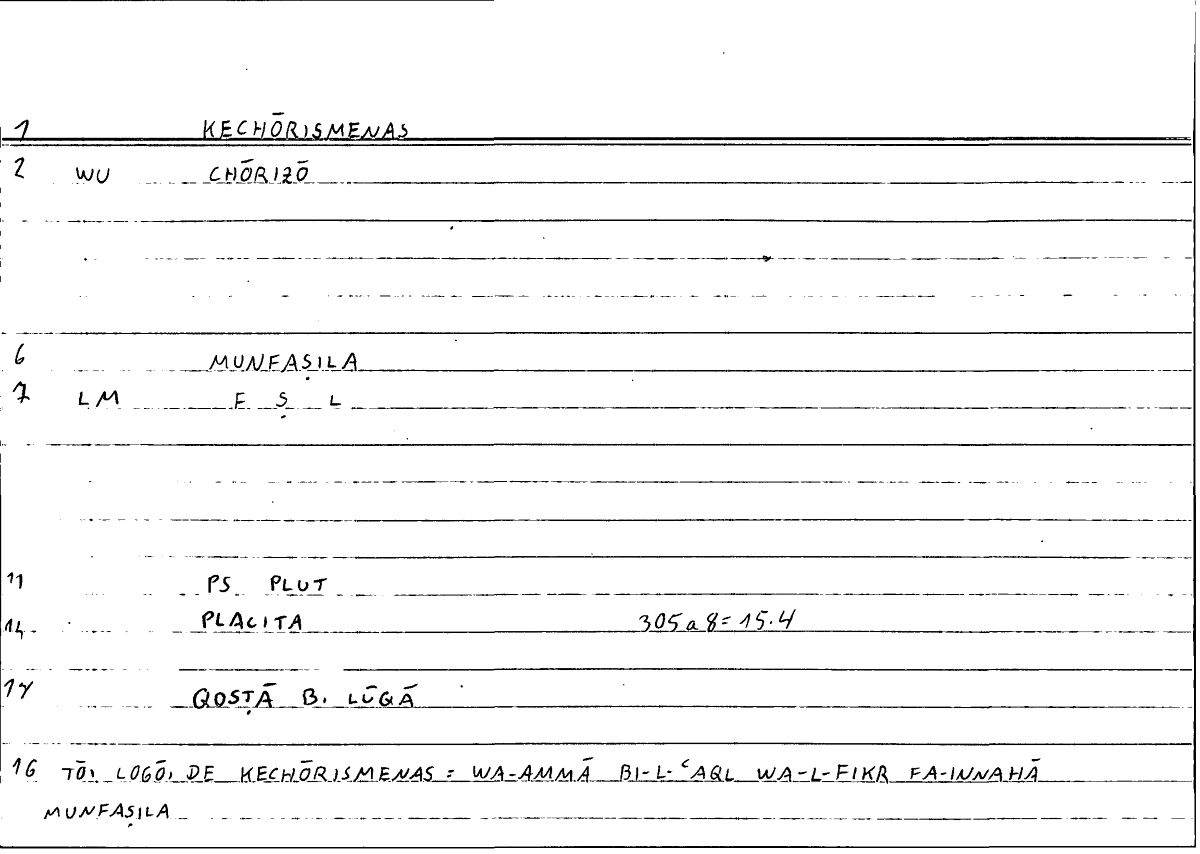 1 KECHŌRISMENAS
2 WU CHŌRIZŌ
6 MUNFAṢILA
7 LM F Ṣ L
11 PS PLUT
14 PLACITA 305a8=15.4
17 QOSṬĀ B. LŪQĀ
16 TŌI LOGŌI DE KECHŌRISMENAS = WA-AMMĀ BI-L-ʿAQL WA-L-FIKR FA-INNAHĀ
MUNFAṢILA